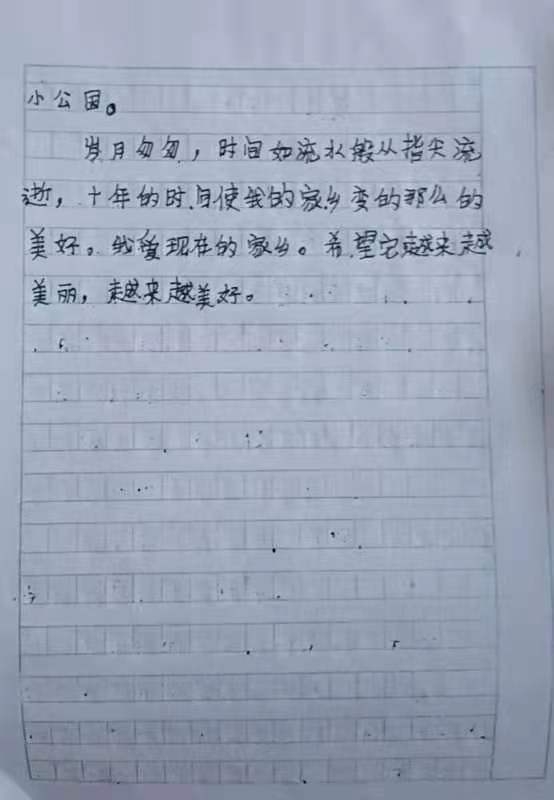 小公园。
岁月匆匆，时间如流水般从指尖流
逝，十年的时间使我的家乡变的那么的
美好。我爱现在的家乡。希望它越来越
美丽，越来越美好。